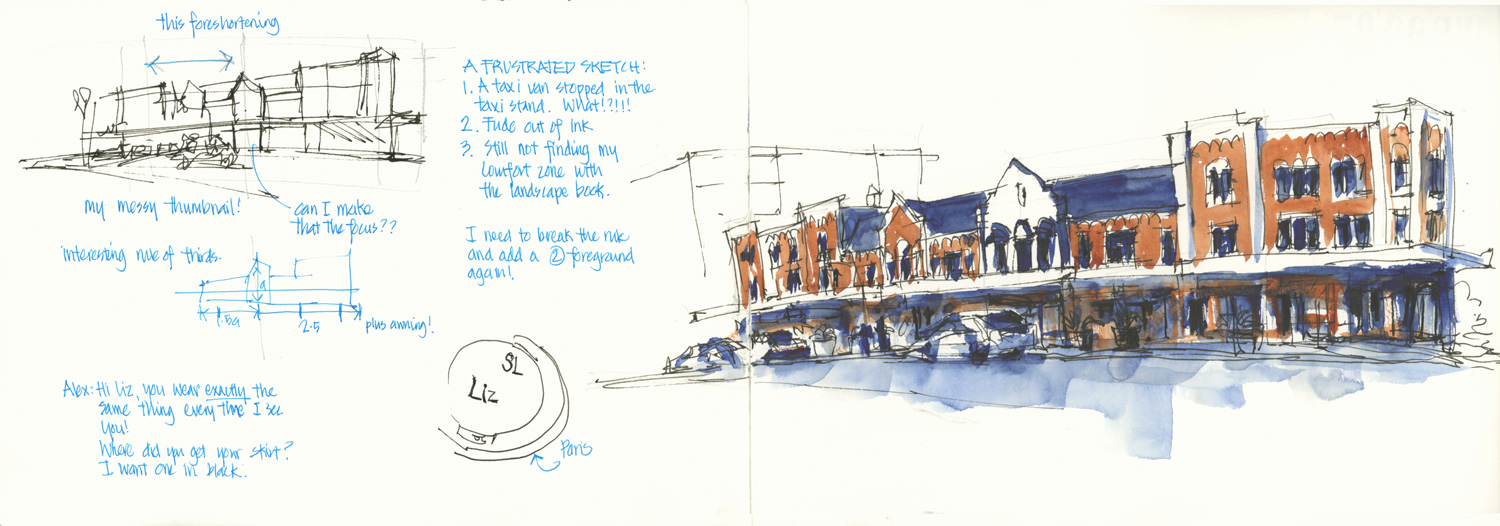 this foreshortening
my messy thumbnail!
can I make
that the focus??
interesting rule of thirds-
a
1.5a
2.5
plus awning!
Alex: Hi Liz, you wear exactly the
same thing every time I see
you!
Where did you get your skirt?
I want one in black.
A FRUSTRATED SKETCH:
1. A taxi van stopped in the
taxi stand. What!?!!!
2. Fude out of ink
3. Still not finding my
comfort zone with
the landscape book.
I need to break the rule
and add a ② foreground
again!
SL
Liz
Paris